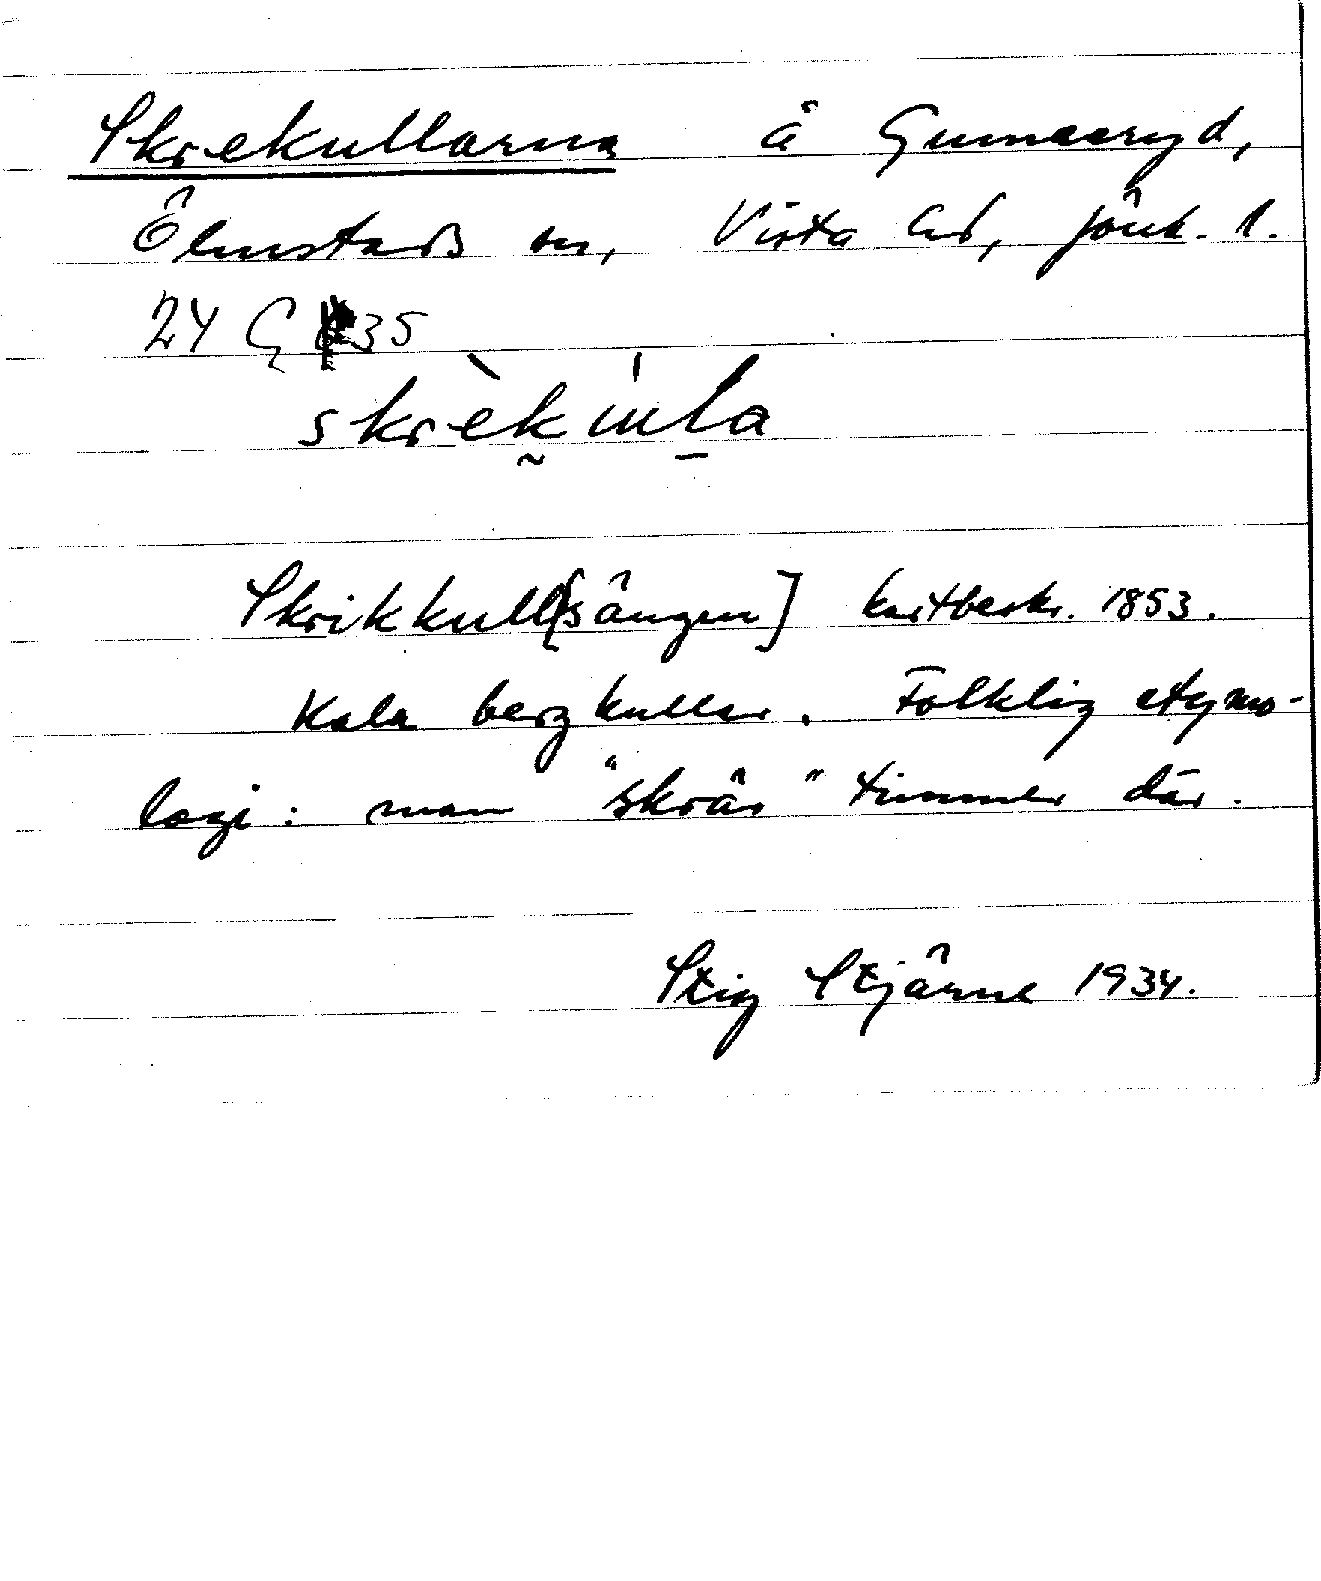 Skrekullarna å Gunnaryd,
Ölmstads sn, Vista hd, Jönk. l.
24 G 35
skrèkùla
Skrikkull[sängen] kartbeskr. 1853.
Kala bergkullar. Folklig etymo-
logi: man "skräs" timmer där.
Stig Stjärne 1934.